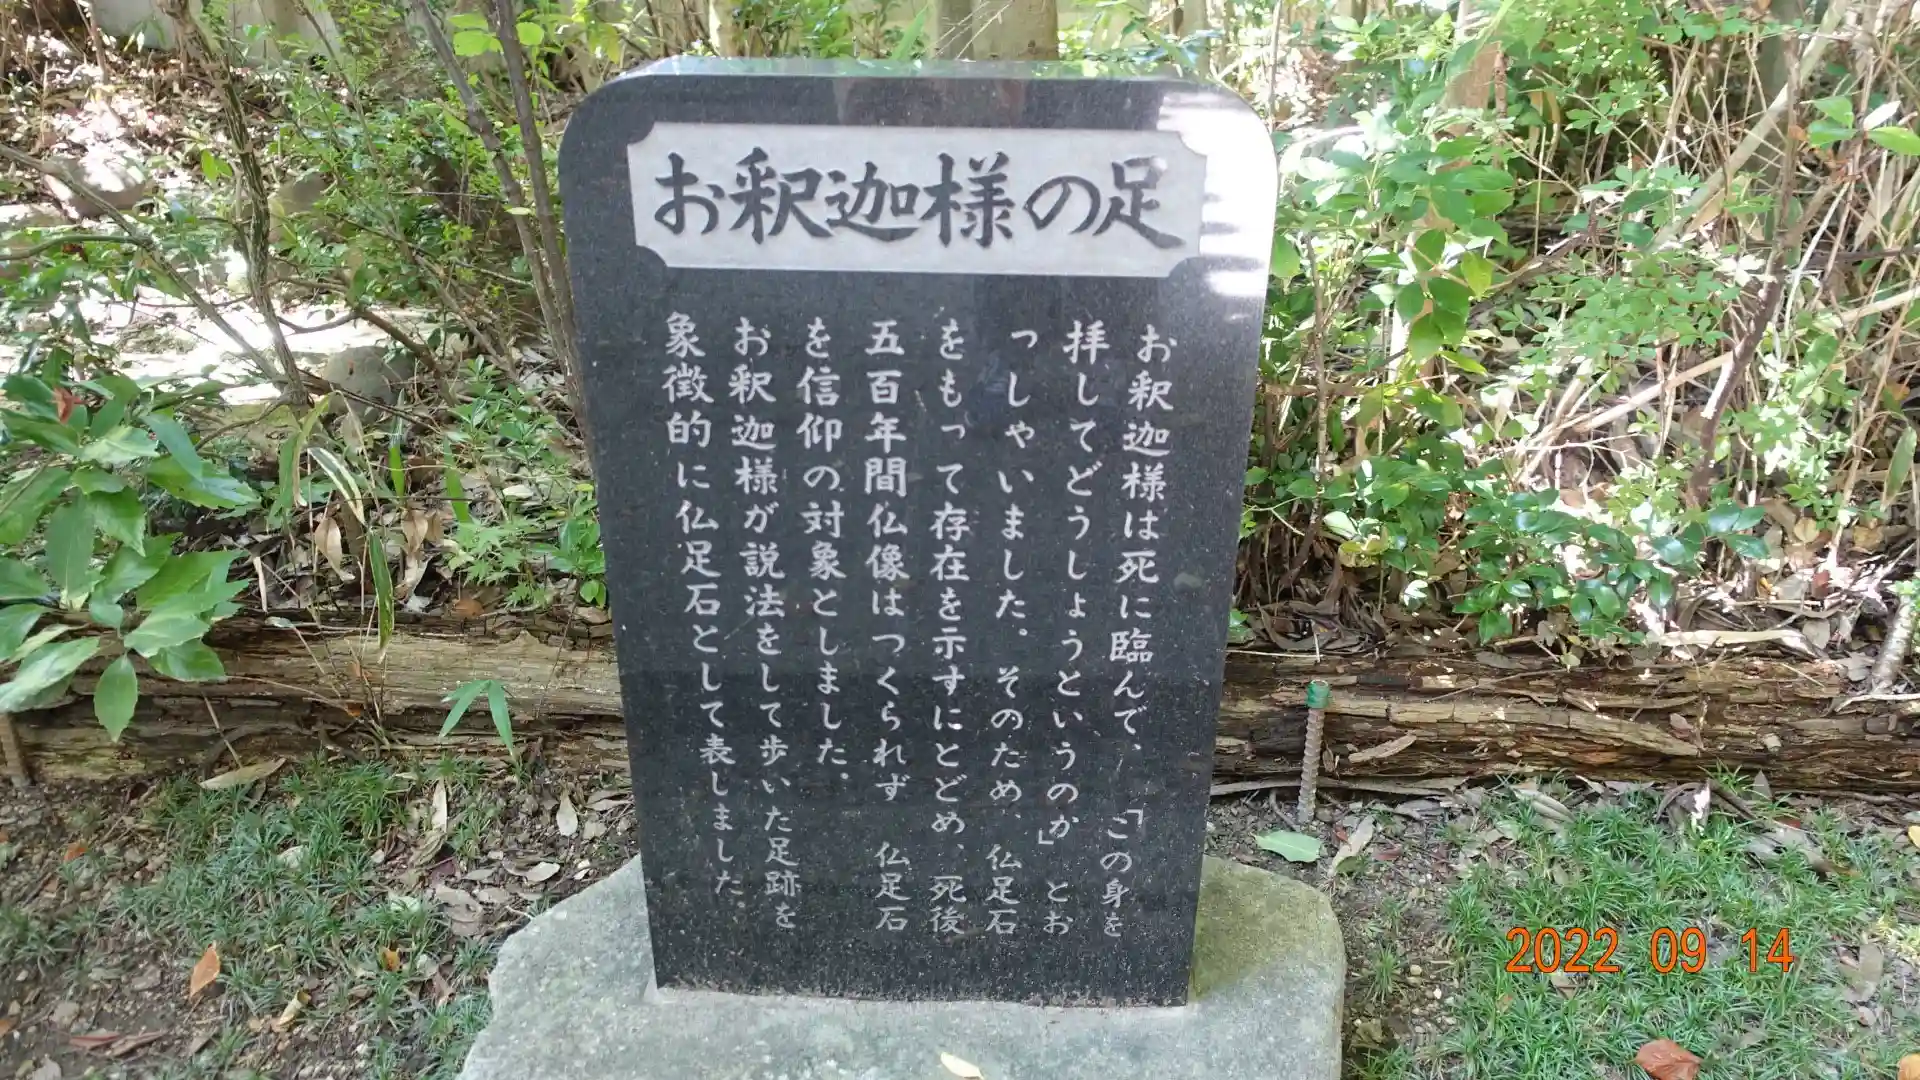 お釈迦様の足
お釈迦様は死に臨んで、「この身を
拝してどうしょうというのか」とお
っしゃいました。そのため、仏足石
をもって存在を示すにとどめ、死後
五百年間仏像はつくられず 仏足石
を信仰の対象としました。
お釈迦様が説法をして歩いた足跡を
象徴的に仏足石として表しました。
2022 09 14